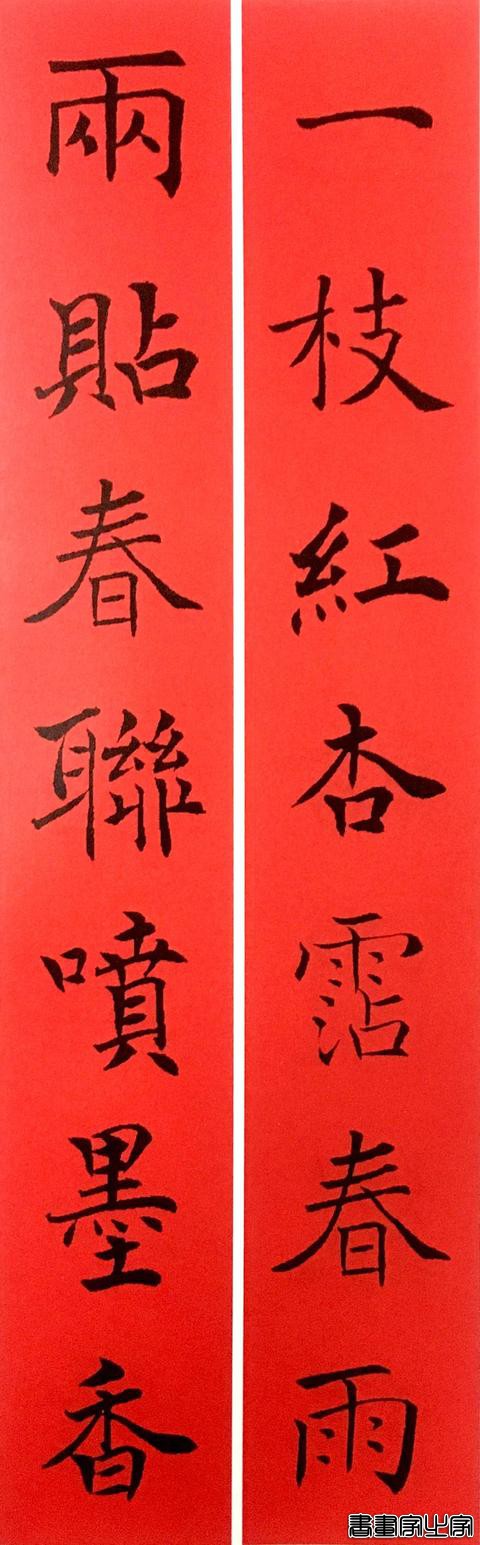 一枝紅杏霑春雨
兩貼春聯噴墨香
書畫字中字